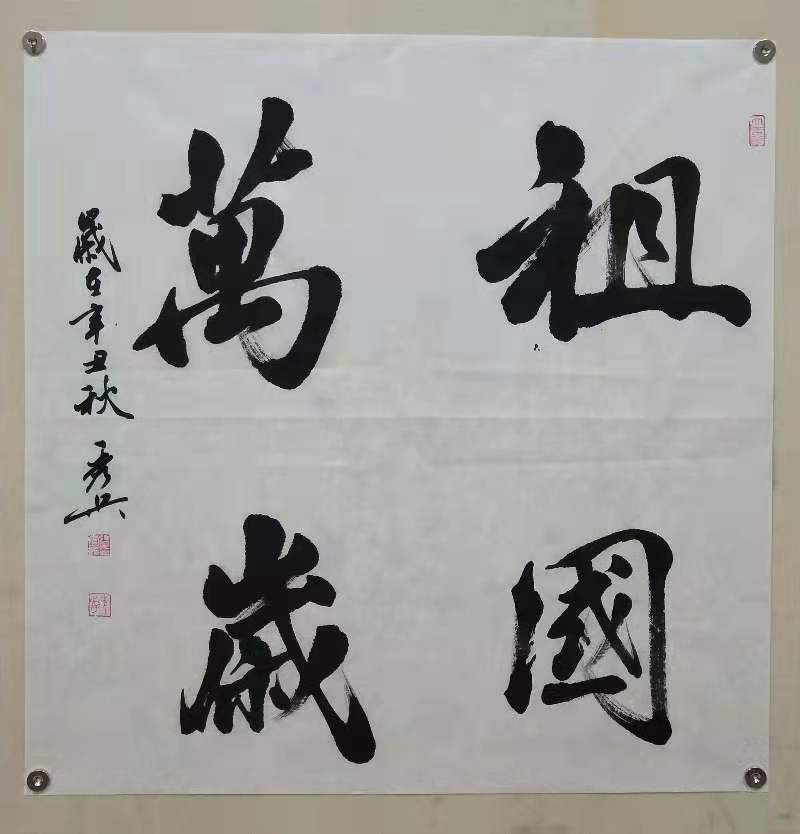 祖國
萬歲
歲在辛丑秋